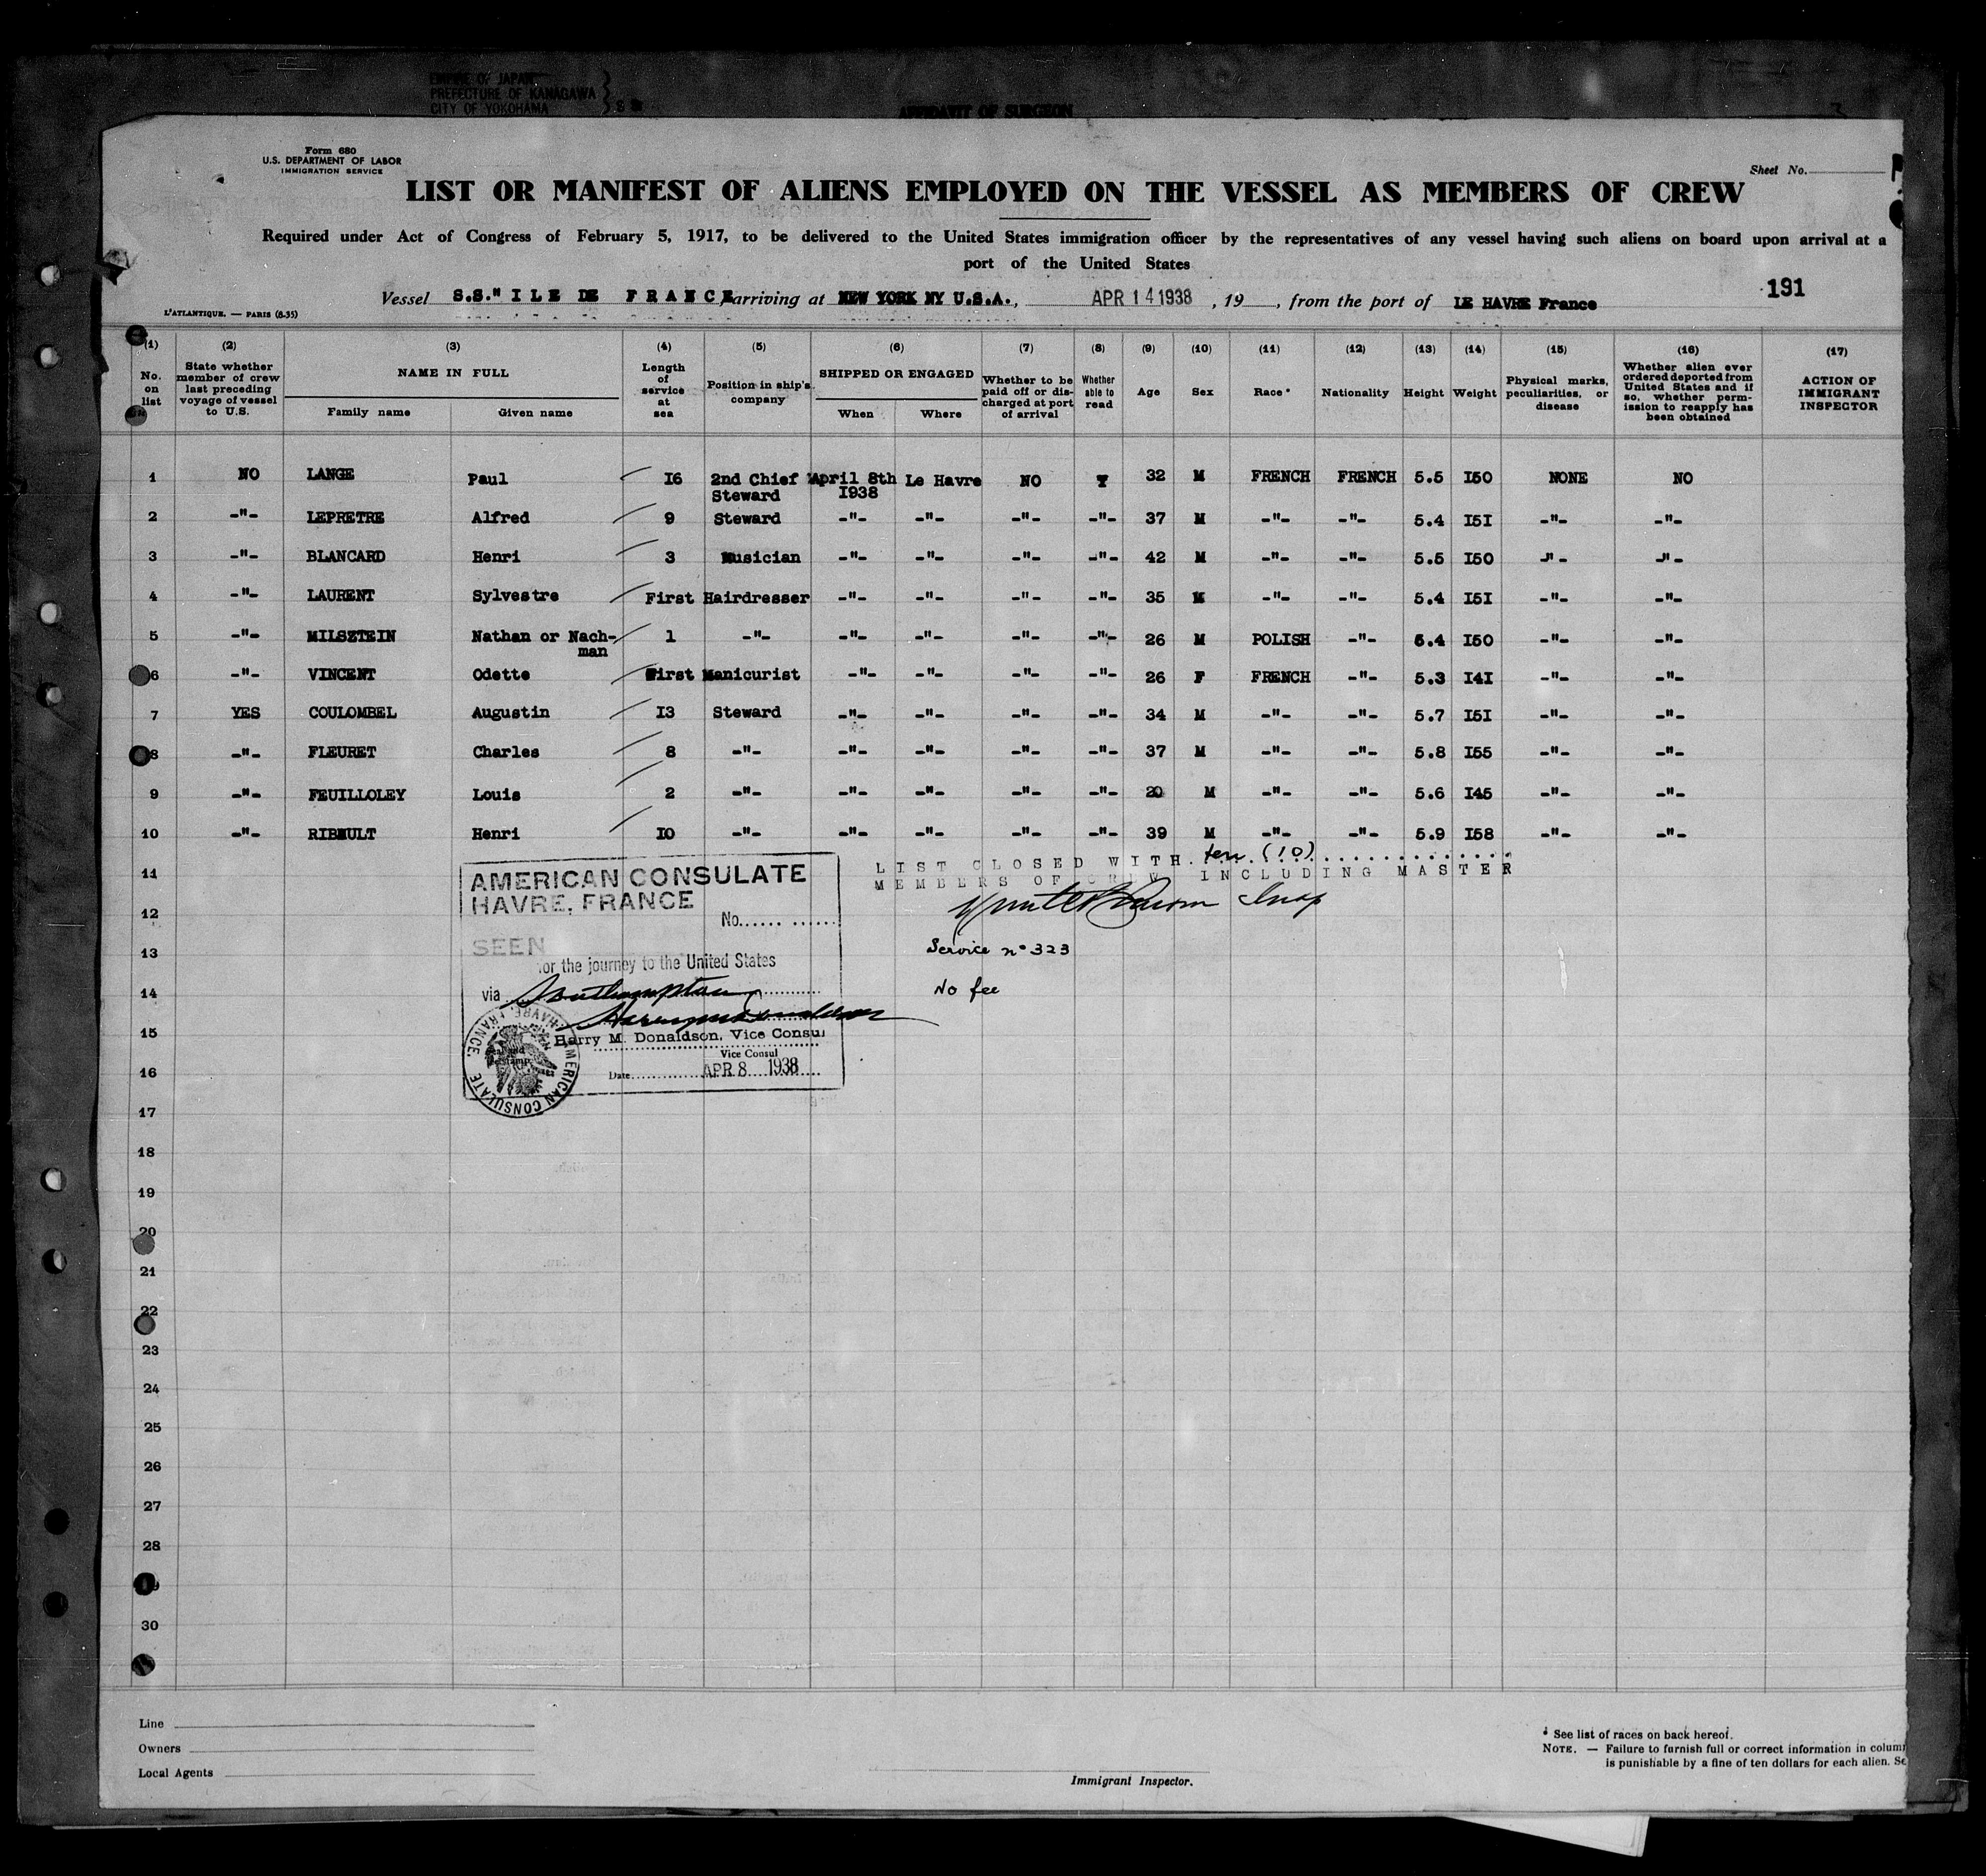 EMPIRE OF JAPAN
PREFECTURE OF KANAGAWA
CITY OF YOKOHAMA
AFFIDAVIT OF SURGEON
Form 680
U.S. DEPARTMENT OF LABOR
IMMIGRATION SERVICE
Sheet No.
LIST OR MANIFEST OF ALIENS EMPLOYED ON THE VESSEL AS MEMBERS OF CREW
Required under Act of Congress of February 5, 1917, to be delivered to the United States immigration officer by the representatives of any vessel having such aliens on board upon arrival at a
port of the United States
191
Vessel S.S." ILE DE FRANCE, arriving at NEW YORK NY U.S.A., APR 14 1938, 19 , from the port of LE HAVRE France
L'ATLANTIQUE. — PARIS (8-35)
(1) (2) (3) (4) (5) (6) (7) (8) (9) (10) (11) (12) (13) (14) (15) (16) (17)
No. on list
State whether member of crew last preceding voyage of vessel to U.S.
NAME IN FULL
Family name Given name
Length of service at sea
Position in ship's company
SHIPPED OR ENGAGED
When Where
Whether to be paid off or discharged at port of arrival
Whether able to read
Age Sex Race* Nationality Height Weight
Physical marks, peculiarities, or disease
Whether alien ever ordered deported from United States and if so, whether permission to reapply has been obtained
ACTION OF IMMIGRANT INSPECTOR
1 NO LANGE Paul 16 2nd Chief Steward April 8th 1938 Le Havre NO Y 32 M FRENCH FRENCH 5.5 I50 NONE NO
2 -"- LEPRETRE Alfred 9 Steward -"- -"- -"- -"- 37 M -"- -"- 5.4 I5I -"- -"-
3 -"- BLANCARD Henri 3 Musician -"- -"- -"- -"- 42 M -"- -"- 5.5 I50 -"- -"-
4 -"- LAURENT Sylvestre First Hairdresser -"- -"- -"- -"- 35 M -"- -"- 5.4 I5I -"- -"-
5 -"- MILSZTEIN Nathan or Nachman 1 -"- -"- -"- -"- -"- 26 M POLISH -"- 5.4 I50 -"- -"-
6 -"- VINCENT Odette First Manicurist -"- -"- -"- -"- 26 F FRENCH -"- 5.3 I4I -"- -"-
7 YES COULOMBEL Augustin I3 Steward -"- -"- -"- -"- 34 M -"- -"- 5.7 I5I -"- -"-
8 -"- FLEURET Charles 8 -"- -"- -"- -"- -"- 37 M -"- -"- 5.8 I55 -"- -"-
9 -"- FEUILLOLEY Louis 2 -"- -"- -"- -"- -"- 20 M -"- -"- 5.6 I45 -"- -"-
10 -"- RIBAULT Henri IO -"- -"- -"- -"- -"- 39 M -"- -"- 5.9 I58 -"- -"-
LIST CLOSED WITH ten (10)
MEMBERS OF CREW INCLUDING MASTER
Service n° 323
No fee
AMERICAN CONSULATE
HAVRE, FRANCE
No.
SEEN
for the journey to the United States
via Southampton
Harry M. Donaldson
Harry M. Donaldson, Vice Consul
Vice Consul
Date APR 8 1938
AMERICAN CONSULATE HAVRE, FRANCE.
11
12
13
14
15
16
17
18
19
20
21
22
23
24
25
26
27
28
30
Line
Owners
Local Agents
Immigrant Inspector.
* See list of races on back hereof.
NOTE. — Failure to furnish full or correct information in
is punishable by a fine of ten dollars for each alien.